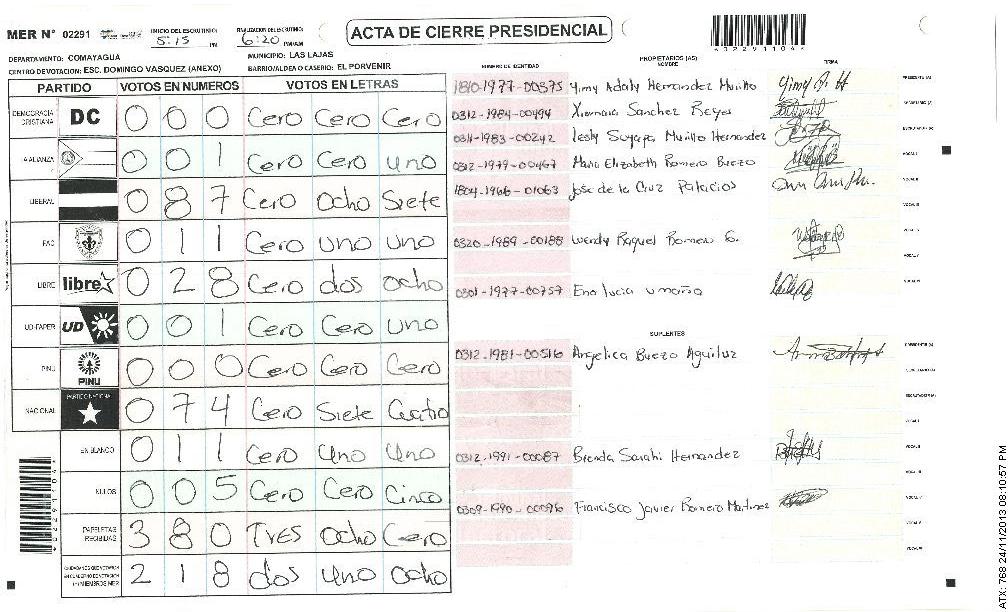 MER N° 02291 INICIO DEL ESCRUTINIO: 5:15 PM FINALIZACION DEL ESCRUTINIO: 6:20 PM/AM ACTA DE CIERRE PRESIDENCIAL
DEPARTAMENTO: COMAYAGUA MUNICIPIO: LAS LAJAS
CENTRO DE VOTACION: ESC. DOMINGO VASQUEZ (ANEXO) BARRIO/ALDEA O CASERIO: EL PORVENIR
PARTIDO VOTOS EN NUMEROS VOTOS EN LETRAS
DEMOCRACIA CRISTIANA DC 0 0 0 Cero Cero Cero
ALIANZA 0 0 1 Cero Cero uno
LIBERAL 0 8 7 Cero Ocho Siete
PAC 0 1 1 Cero uno uno
LIBRE libre 0 2 8 Cero dos ocho
UD-FAPER UD 0 0 1 Cero Cero uno
PINU PINU 0 0 0 Cero Cero Cero
NACIONAL PARTIDO NACIONAL 0 7 4 Cero Siete Cuatro
EN BLANCO 0 1 1 Cero Uno Uno
NULOS 0 0 5 Cero Cero Cinco
PAPELETAS RECIBIDAS 3 8 0 Tres Ocho Cero
CIUDADANOS QUE VOTARON EN CUADERNO DE VOTACION (+) MIEMBROS MER 2 1 8 dos Uno Ocho
PROPIETARIOS (AS)
NUMERO DE IDENTIDAD NOMBRE FIRMA
1810-1977-00375 Yimy Adaly Hernandez Murillo PRESIDENTE (A)
0312-1984-00494 Xiomara Sanchez Reyes SECRETARIO (A)
0311-1983-00242 Lesly Suyapa Murillo Hernandez ESCRUTADOR (A)
0312-1979-00467 Maria Elizabeth Romero Buezo VOCAL I
1804-1966-01063 Jose de la Cruz Palacios VOCAL II
VOCAL III
0320-1989-00188 Wendy Raquel Romero G. VOCAL IV
VOCAL V
0301-1977-00757 Ena lucia umaña VOCAL VI
SUPLENTES
0312-1981-00516 Angelica Buezo Aguiluz PRESIDENTE (A)
SECRETARIO (A)
ESCRUTADOR (A)
VOCAL I
0312-1991-00087 Brenda Sarahi Hernandez VOCAL II
VOCAL III
0309-1990-00096 Francisco Javier Romero Martinez VOCAL IV
VOCAL V
VOCAL VI
ATX: 768 24/11/2013 08:10:57 PM